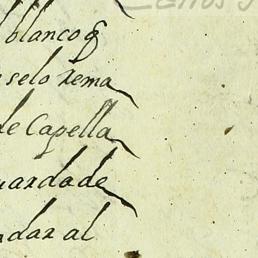 blanco q
selo rema
de Capella
uarda de
dar al